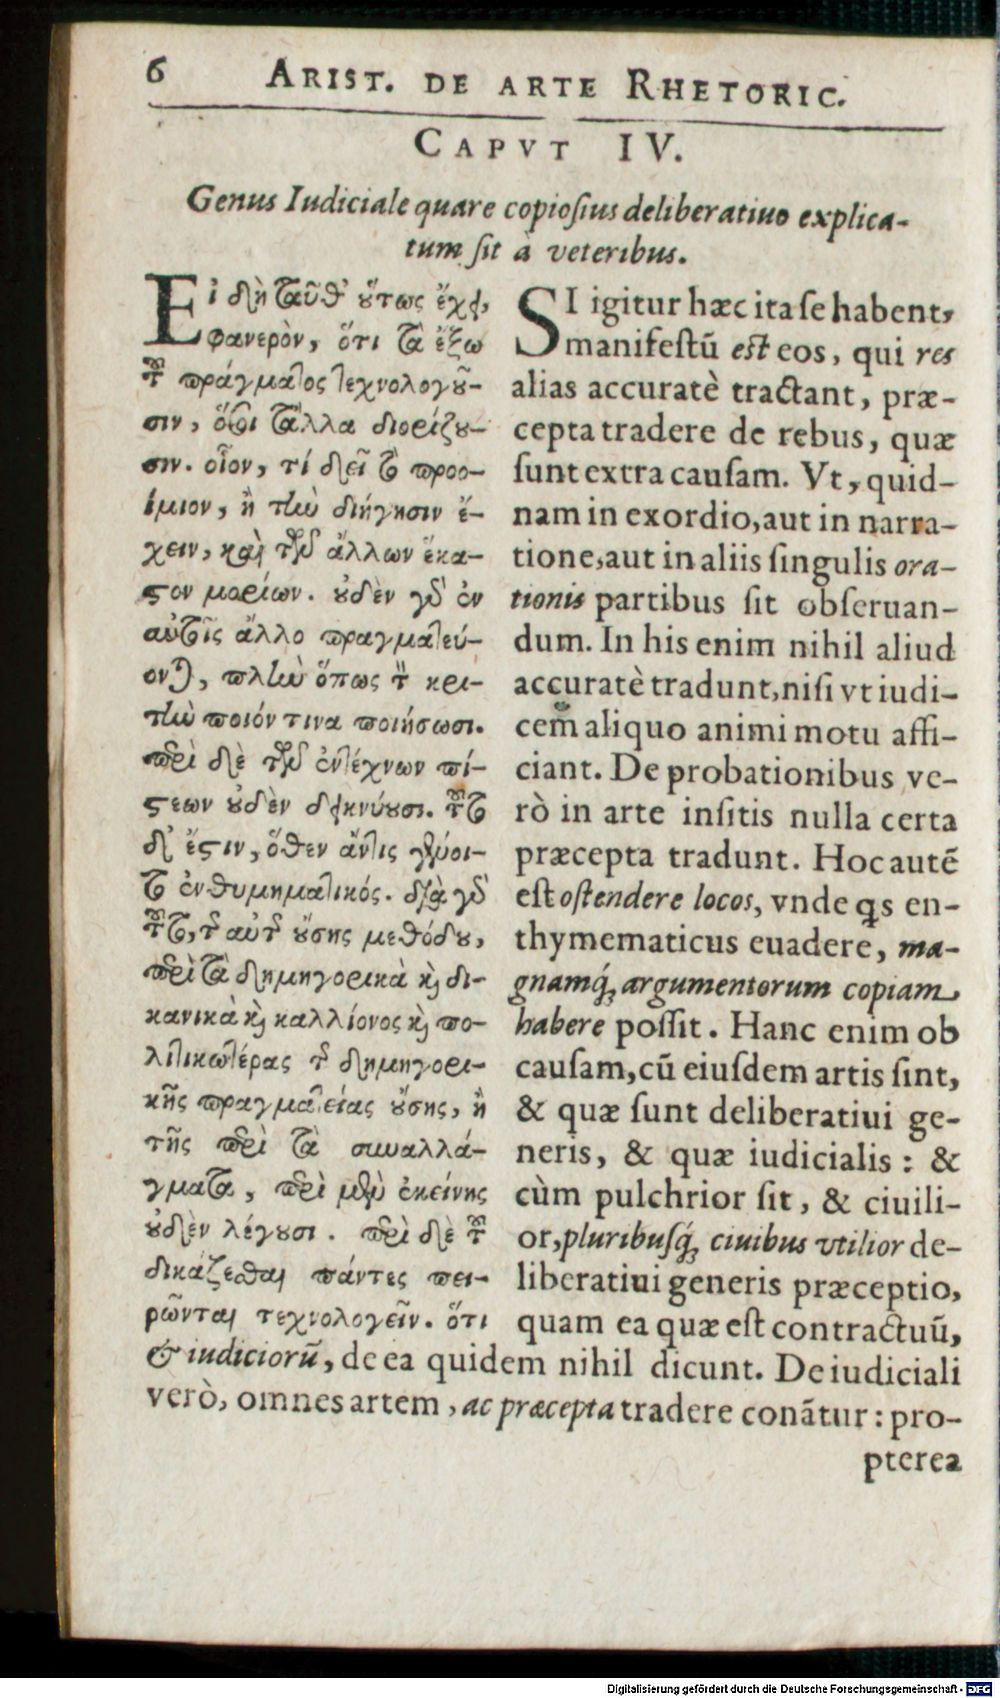 6 ARIST. DE ARTE RHETORIC.
CAPVT IV.
Genus Iudiciale quare copiosius deliberatiuo explica-
tum sit à veteribus.
Εἰ δὴ ταῦθ' ὕτως ἔχει,
φανερὸν, ὅτι τὰ ἔξω
τῦ πράγματος τεχνολογῦ-
σιν, ὅσοι τἄλλα διορίζυ-
σιν. οἷον, τί δεῖ τὸ προο-
ίμιον, ἢ τὴν διήγησιν ἔ-
χειν, καὶ τῶν ἄλλων ἕκα-
στον μορίων. ὐδὲν γὰρ ἐν
αὐτοῖς ἄλλο πραγματεύ-
ονται, πλὴν ὅπως τὸν κρι-
τὴν ποιόν τινα ποιήσωσι.
περὶ δὲ τῶν ἐντέχνων πί-
στεων ὐδὲν δεικνύυσι. τῦτο
δ' ἔστιν, ὅθεν ἄντις γένοι-
το ἐνθυμηματικός. διὰ γὰρ
τῦτο, τῆς αὐτῆς ὔσης μεθόδυ,
περὶ τὰ δημηγορικὰ καὶ δι-
κανικὰ καὶ καλλίονος καὶ πο-
λιτικωτέρας τῆς δημηγορι-
κῆς πραγματείας ὔσης, ἢ
τῆς περὶ τὰ συναλλά-
γματα, περὶ μὲν ἐκείνης
ὐδὲν λέγυσι. περὶ δὲ τῦ
δικάζεσθαι πάντες πει-
ρῶνται τεχνολογεῖν. ὅτι
SI igitur hæc ita se habent,
manifestũ est eos, qui res
alias accuratè tractant, præ-
cepta tradere de rebus, quæ
sunt extra causam. Vt, quid-
nam in exordio, aut in narra-
tione, aut in aliis singulis ora-
tionis partibus sit obseruan-
dum. In his enim nihil aliud
accuratè tradunt, nisi vt iudi-
cem aliquo animi motu affi-
ciant. De probationibus ve-
rò in arte insitis nulla certa
præcepta tradunt. Hoc autẽ
est ostendere locos, vnde qs en-
thymematicus euadere, ma-
gnamq́; argumentorum copiam
habere possit. Hanc enim ob
causam, cũ eiusdem artis sint,
& quæ sunt deliberatiui ge-
neris, & quæ iudicialis : &
cùm pulchrior sit, & ciuili-
or, pluribusq́; ciuibus vtilior de-
liberatiui generis præceptio,
quam ea quæ est contractuũ,
& iudiciorũ, de ea quidem nihil dicunt. De iudiciali
verò, omnes artem, ac præcepta tradere conãtur : pro-
pterea
Digitalisierung gefördert durch die Deutsche Forschungsgemeinschaft - DFG